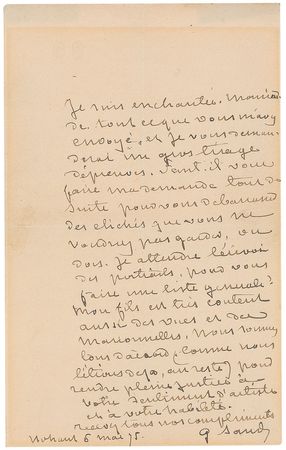 Je suis enchantée, Monsieur
de tout ce que vous m'avez
envoyé, et je vous deman-
derai un gros tirage
d'épreuves. Faut-il vous
faire ma demande tout de
suite pour vous débarrasser
des clichés que vous ne
voudrez pas garder, ou
dois-je attendre l'envoi
des portraits, pour vous
faire une liste générale?
Mon fils est très content
aussi des vues et des
marionnettes. Nous sommes
tous d'accord (comme nous
l'étions déjà, au reste) pour
rendre pleine justice à
votre sentiment d'artiste
et à votre habileté.
recevez tous nos compliments
G Sand
Nohant 6 mai 75.